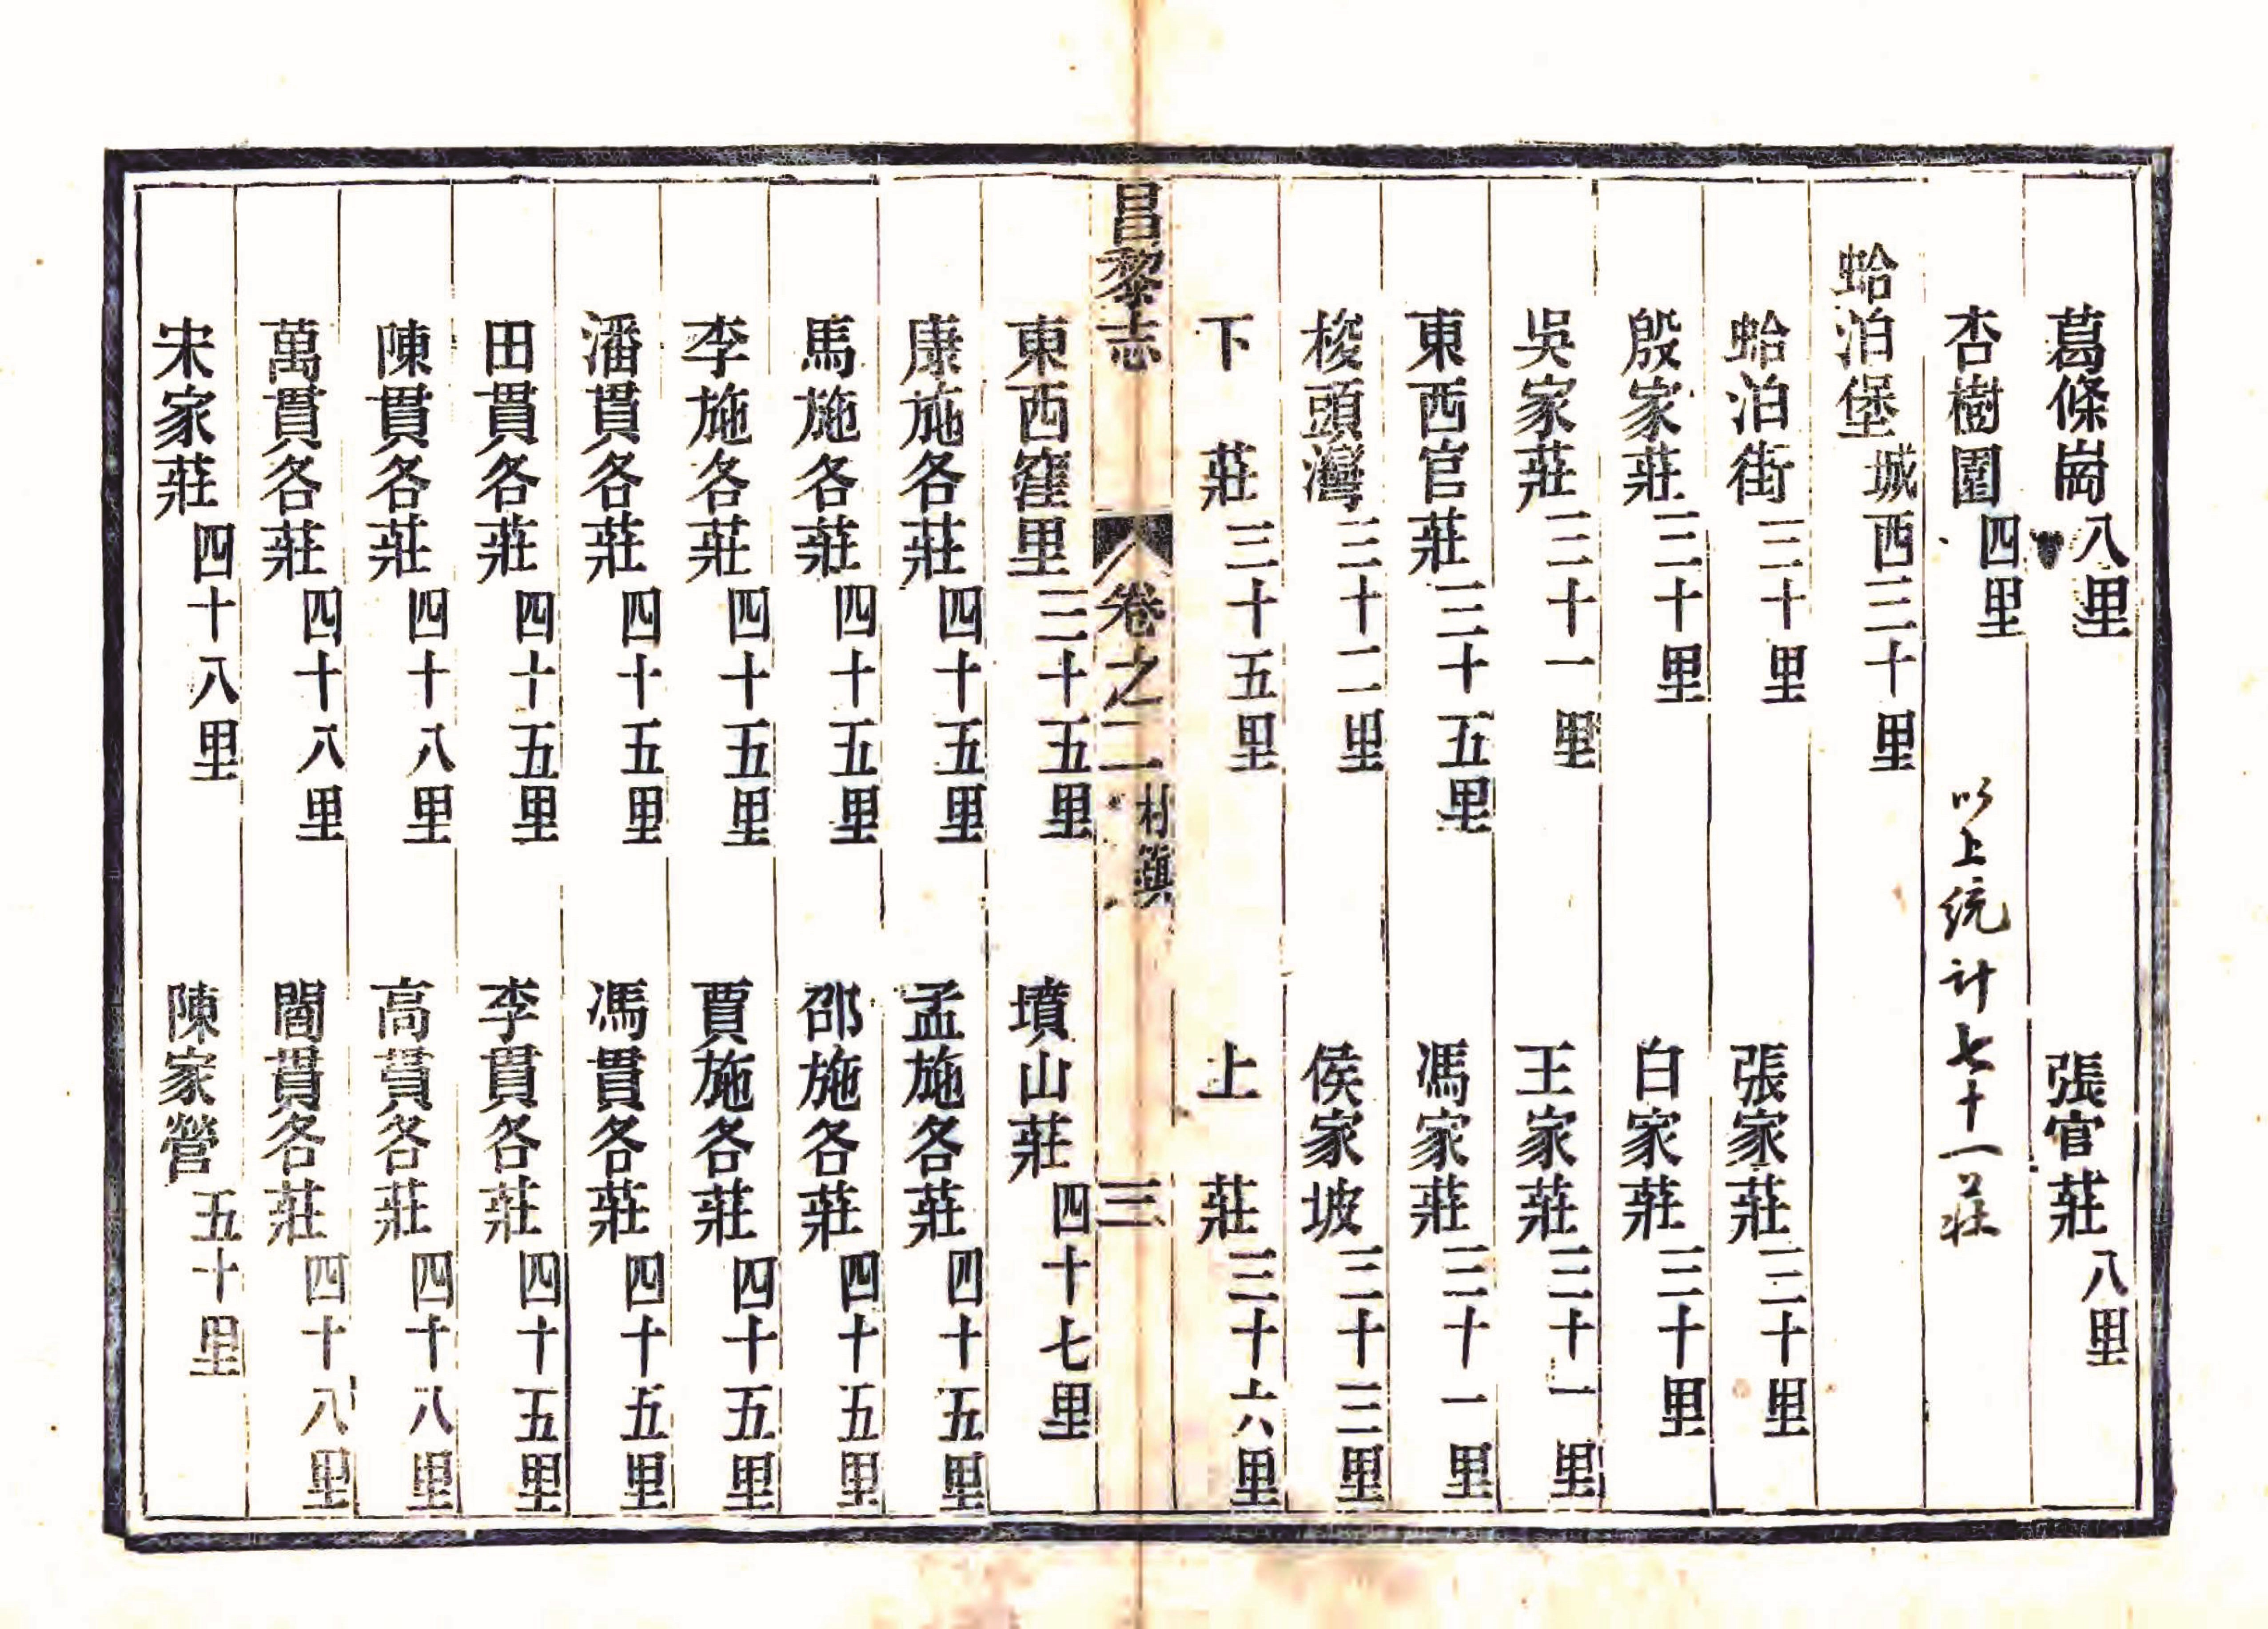 葛條崗八里　張官莊八里
杏樹園四里　以上统计七十一莊
蛤泊堡城西三十里
蛤泊街三十里　張家莊三十里
殷家莊三十里　白家莊三十里
吳家莊三十一里　王家莊三十一里
東西官莊三十五里　馮家莊三十一里
梭頭灣三十二里　侯家坡三十三里
下莊三十五里　上莊三十六里
昌黎志　卷之二　村鎮　三
東西窪里三十五里　墳山莊四十七里
康施各莊四十五里　孟施各莊四十五里
馬施各莊四十五里　邵施各莊四十五里
李施各莊四十五里　賈施各莊四十五里
潘貫各莊四十五里　馮貫各莊四十五里
田貫各莊四十五里　李貫各莊四十五里
陳貫各莊四十八里　高貫各莊四十八里
萬貫各莊四十八里　閻貫各莊四十八里
宋家莊四十八里　陳家營五十里